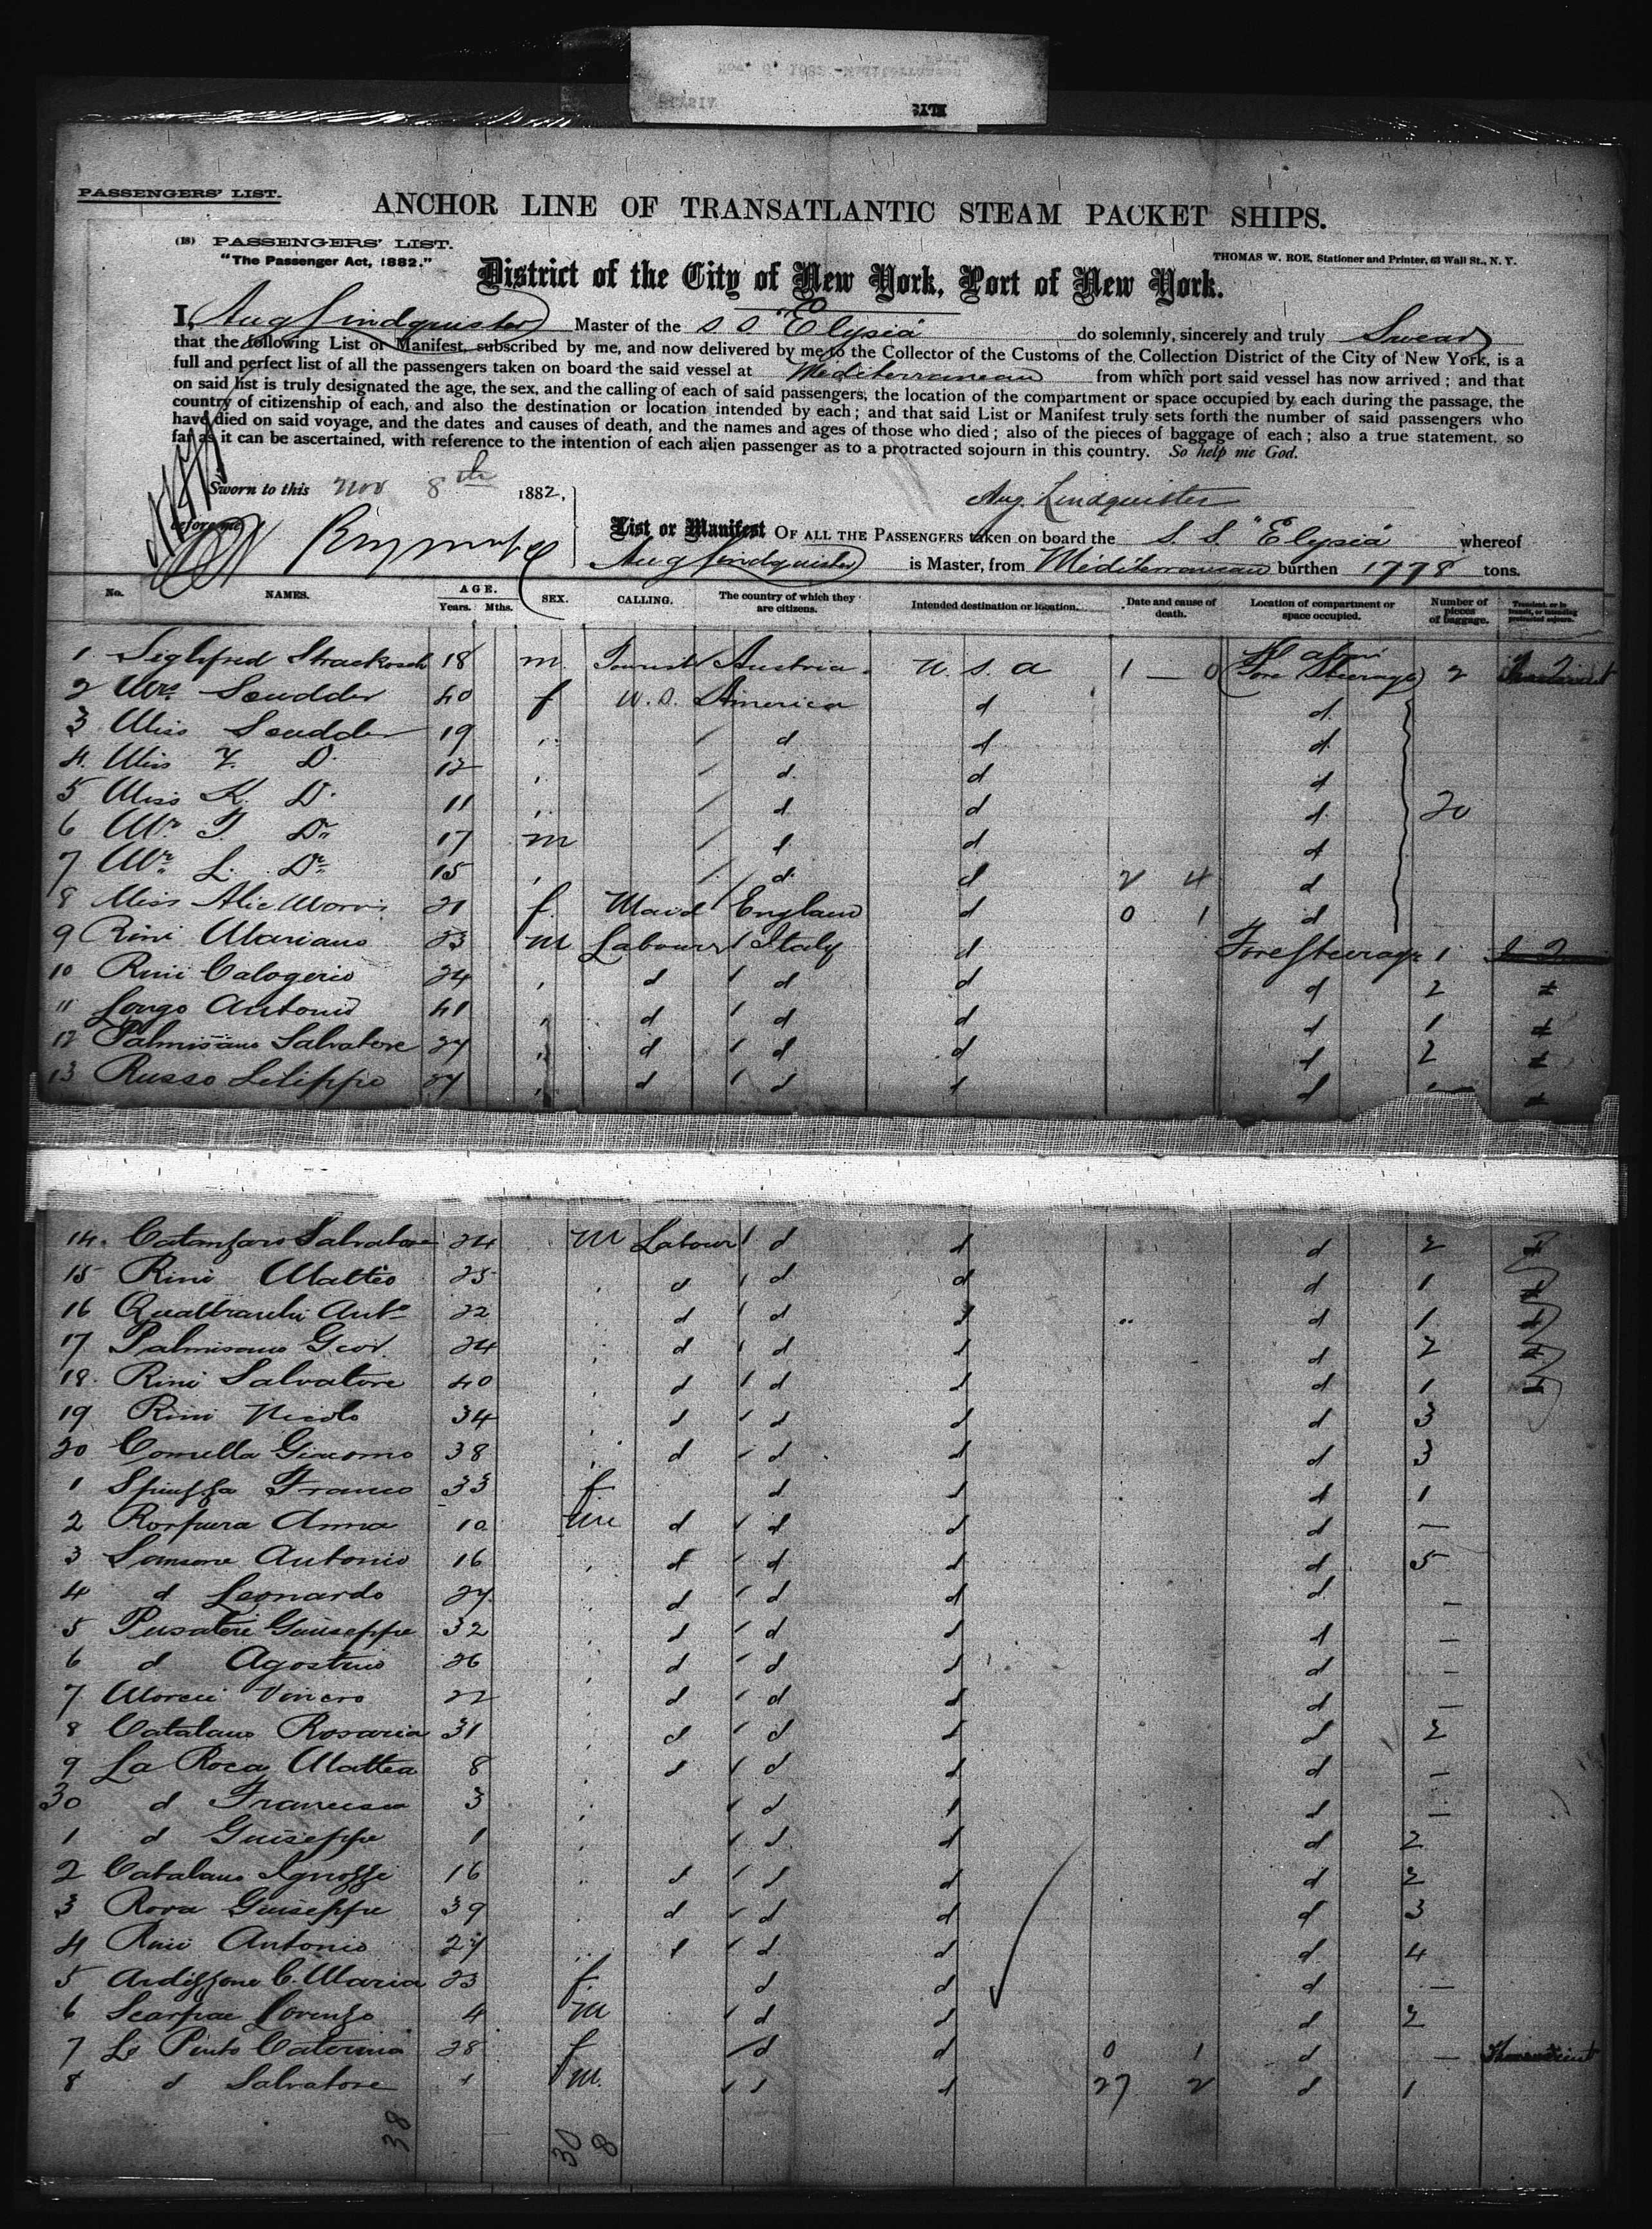 PASSENGERS' LIST.
ANCHOR LINE OF TRANSATLANTIC STEAM PACKET SHIPS.
(18) PASSENGERS' LIST.
"The Passenger Act, 1882."
THOMAS W. ROE, Stationer and Printer, 63 Wall St., N. Y.
District of the City of New York, Port of New York.
I, Aug Lindquister Master of the S S. "Elysia do solemnly, sincerely and truly Swear
that the following List or Manifest, subscribed by me, and now delivered by me to the Collector of the Customs of the Collection District of the City of New York, is a
full and perfect list of all the passengers taken on board the said vessel at Mediterranean from which port said vessel has now arrived; and that
on said list is truly designated the age, the sex, and the calling of each of said passengers, the location of the compartment or space occupied by each during the passage, the
country of citizenship of each, and also the destination or location intended by each; and that said List or Manifest truly sets forth the number of said passengers who
have died on said voyage, and the dates and causes of death, and the names and ages of those who died; also of the pieces of baggage of each; also a true statement, so
far as it can be ascertained, with reference to the intention of each alien passenger as to a protracted sojourn in this country. So help me God.
Sworn to this Nov 8th 1882,
before me
Aug. Lindquister
List or Manifest OF ALL THE PASSENGERS taken on board the S. S. "Elysia" whereof
Aug Lindquister is Master, from Mediterranean burthen 1778 tons.
No. NAMES. AGE. Years. Mths. SEX. CALLING. The country of which they are citizens. Intended destination or location. Date and cause of death. Location of compartment or space occupied. Number of pieces of baggage. Transient, or in transit, or intending protracted sojourn.
1 Seghfred Strackosch 18 m. Tourist Austria U. S. A 1 — 0 Fore Steerage 2
2 Mrs Scudder 40 f U.S. America d d
3 Miss Scudder 19 " d d d
4. Miss F. D. 12 " d. d d
5 Miss K. D. 11 " d d d 20
6 Mr. T. Do 17 m d d d
7 Mr. L. Do 15 " d. d 2 4 d
8 Miss Alic Morris 21 f. Maid England d 0 1 d
9 Rini Mariano 23 m Labourer Italy d Fore Steerage 1
10 Rini Calogerio 24 " d d d d 2 d
11 Longo Antonio 41 " d d d d 1 d
12 Palmisano Salvatore 27 " d d d d 2 d
13 Russo Filippo 27 " d d d d — d
14. Catanzaro Salvatore 24 m Labour d d d 2 d
15 Rini Matteo 25 " d d d d 1 d
16 Anto 22 " d d d d 1 d
17 Palmisano Giov. 24 " d d d d 2 d
18. Rini Salvatore 40 " d d d d 1 d
19 Rini Nicolo 34 " d d d d 3
20 Comella Giacomo 38 " d d d d 3
1 Franco 33 f d d d 1
2 Anna 10 m d d d d —
3 Sansone Antonio 16 " d d d d 5
4 d Leonardo 27 " d d d d —
5 Pusateri Guiseppe 32 " d d d d —
6 d Agostino 26 " d d d d —
7 22 " d d d d —
8 Catalano Rosaria 31 " d d d d 2
9 La Roca Mattea 8 " d d d d —
30 d Francesca 3 " d d d —
1 d Guiseppe 1 " d d d 2
2 Catalano Ignozzi 16 " d d d d 2
3 Rova Guiseppe 39 " d d d d 3
4 Rini Antonio 27 " d d d d 4
5 Ardizzone C. Maria 23 f. d d d —
6 Scarpac Lorenzo 4 m d d d 2
7 Lo Pinto Caterina 28 f d d 0 1 d — Transient
8 d Salvatore 1 m. d d 27 2 d 1
38 30 8